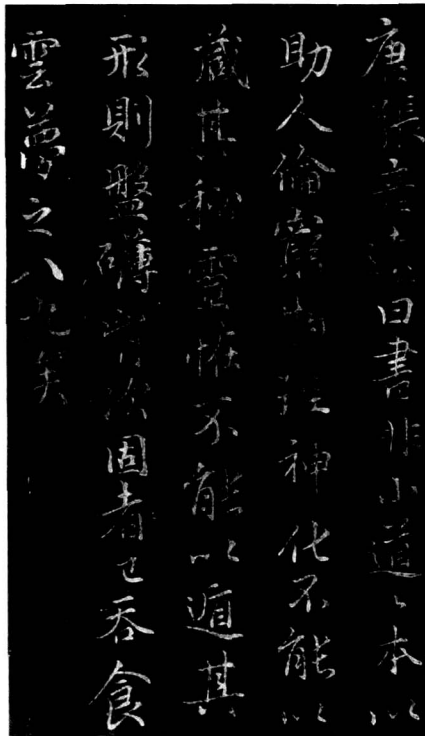 唐張彥遠曰書非小道〻本以
助人倫窮物理神化不能以
藏其秘靈恠不能以遁其
形則盤礴胷次固者已吞食
雲夢之八九矣